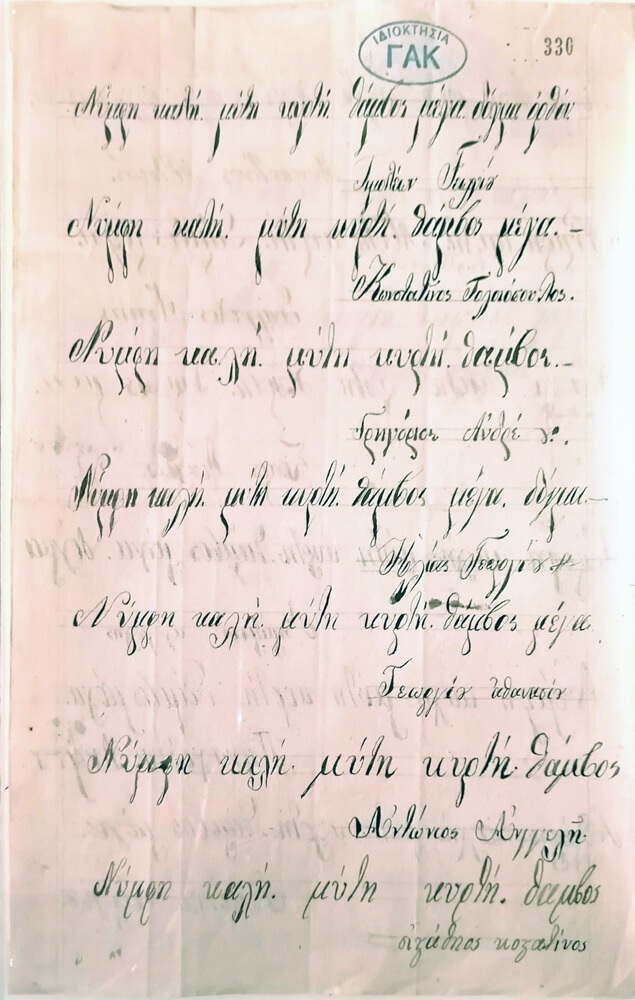 ΙΔΙΟΚΤΗΣΙΑ
ΓΑΚ
330
Νύμφη καλή. μύτη κυρτή. θάμβος μέγα. δόγμα ορθόν.
Νύμφη καλή. μύτη κυρτή. θάμβος μέγα.—
Κωνσταντίνος
Νύμφη καλή. μύτη κυρτή. θάμβος.—
Γρηγόριος Ανδρέ
Νύμφη καλή. μύτη κυρτή. θάμβος μέγα. δόγμα.—
Ηλίας Γεωργίου
Νύμφη καλή. μύτη κυρτή. θάμβος μέγα
Γεωργίου αθανασίου
Νύμφη καλή. μύτη κυρτή. θάμβος
Αντώνιος Αγγελή.
Νύμφη καλή. μύτη κυρτή. θάμβος